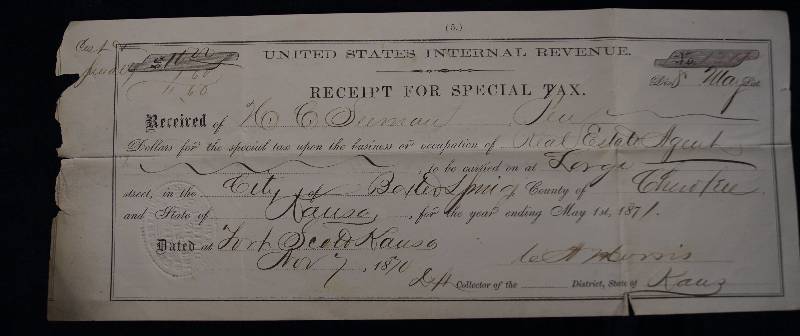 (5.)
UNITED STATES INTERNAL REVENUE.
RECEIPT FOR SPECIAL TAX.
Div 8 May Dist.
Received of H C Seeman Ten
Dollars for the special tax upon the business or occupation of Real Estate Agent
, to be carried on at Large
street, in the City of Baxter Spring County of Cherokee
and State of Kansas, for the year ending May 1st, 1871.
Dated at Fort Scott Kansas
Nov 7, 1870
Dept Collector of the District, State of Kans